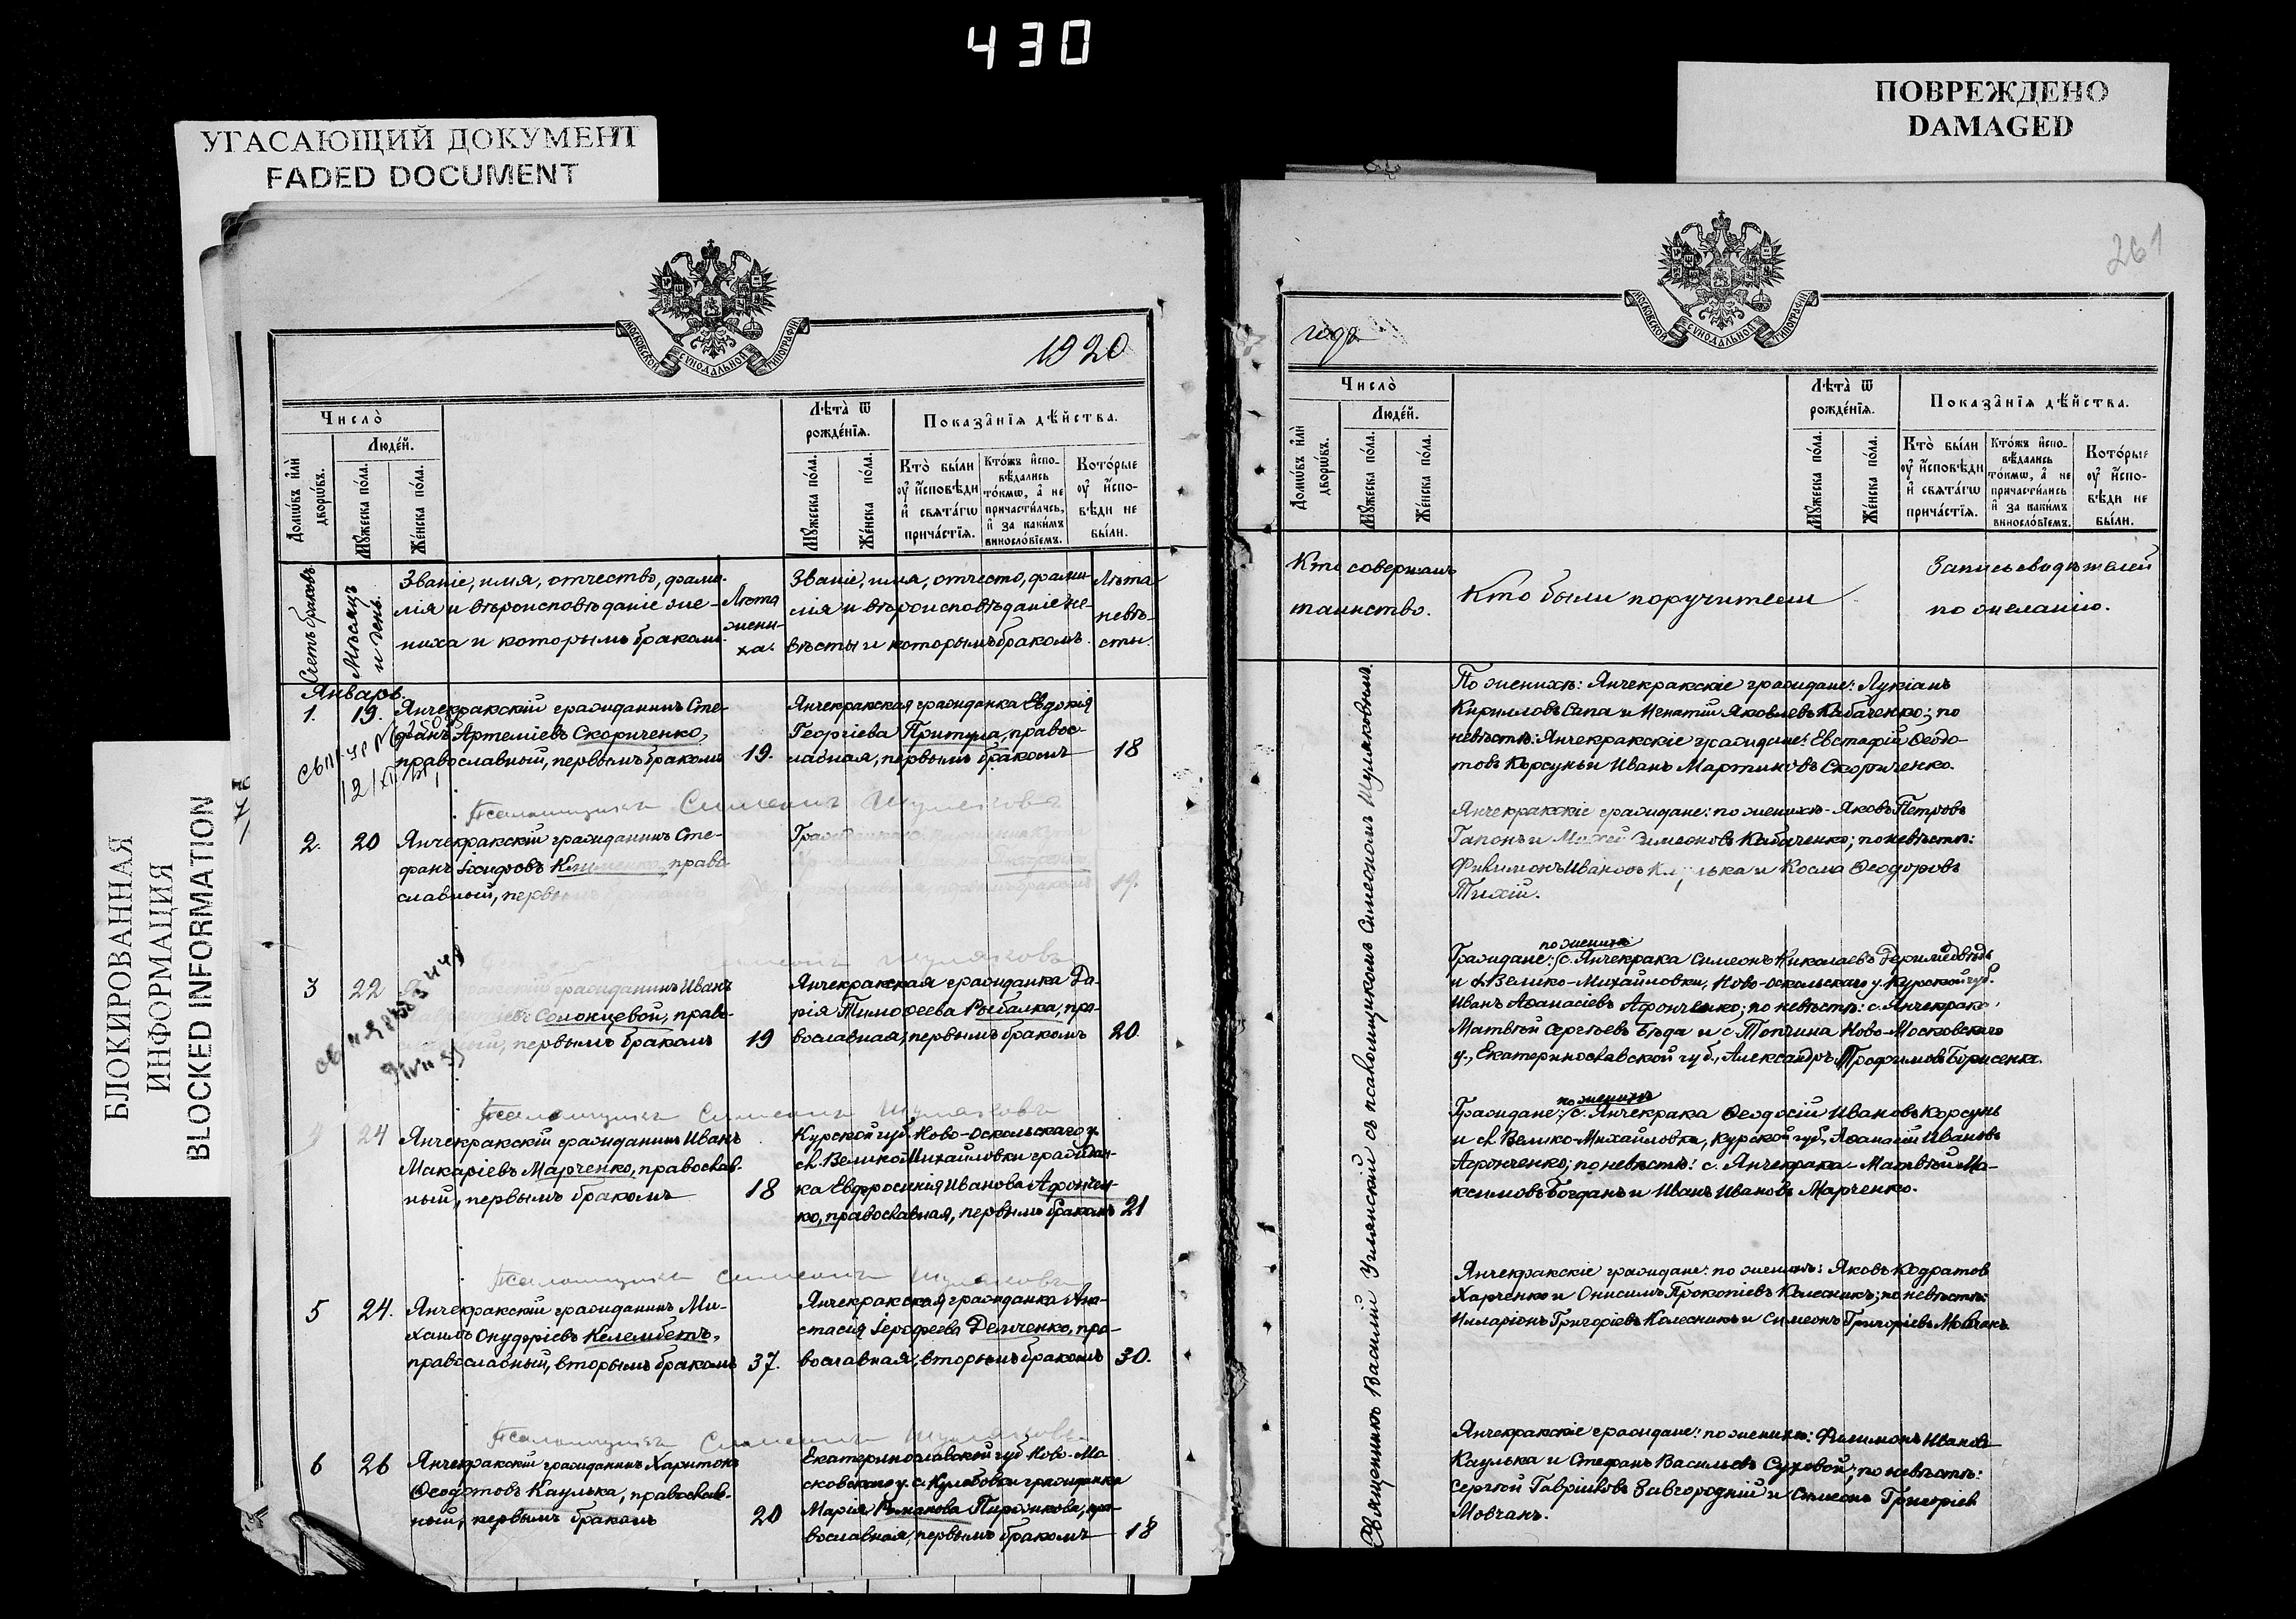 430
УГАСАЮЩИЙ ДОКУМЕНТ
FADED DOCUMENT
ПОВРЕЖДЕНО
DAMAGED
БЛОКИРОВАННАЯ
ИНФОРМАЦИЯ
BLOCKED INFORMATION
МОСКОВСКОЙ СУНОДАЛЬНОЙ ТИПОГРАФІИ
1920
Число̀
Люде́й.
Домѡ́въ и҆лѝ дворѡ́въ.
Мꙋ́жеска по́ла.
Же́нска по́ла.
Лѣта̀ ѿ рожде́нїѧ.
Мꙋ́жеска по́ла.
Же́нска по́ла.
Показа̑нїѧ дѣ́йства.
Кто̀ бы́ли
оу҆ и҆́сповѣди
и҆ свѧта́гѡ
прича́стїѧ.
Кто́жъ и҆спо-
вѣдались
то́кмѡ, а҆ не
причасти́лись,
и҆ за каки́мъ
винослѡ́вїемъ.
Кото́рые
оу҆ и҆спо-
вѣди не
бы́ли.
Счетъ браковъ.
Мѣсяцъ и день.
Званіе, имя, отчество, фами-
лія и вѣроисповѣданіе же-
ниха и которымъ бракомъ.
Лѣта
жени-
ха.
Званіе, имя, отчесто, фами
лія и вѣроисповѣданіе не-
вѣсты и которымъ бракомъ.
Лѣта
невѣ-
сты.
Январь.
1. 19. Янчекракскій гражданинъ Сте-
фанъ Артеміевъ Скориченко,
православный, первымъ бракомъ 19.
Янчекракская гражданка Евдокія
Георгіева Притула, правос-
лавная, первымъ бракомъ 18
Псаломщикъ Симеонъ Шумяковъ
2. 20 Янчекракскій гражданинъ Сте-
фанъ Клименко, право
славный, первымъ
19.
Симеонъ Шумяковъ
3 22 гражданинъ Иванъ
Солонцевой, право-
первымъ бракомъ 19
Янчекракская гражданка Да-
рія Тимофеева Рыбалка, пра-
вославная, первымъ бракомъ 20
Псаломщикъ Симеонъ Шумяковъ
4 24 Янчекракскій гражданинъ Иванъ
Макаріевъ Марченко, православ-
ный, первымъ бракомъ 18
Курской губ. Ново-Оскольскаго у.
сл. Велико Михайловки граждан-
ка Евфросинія Иванова Афончен-
ко, православная, первымъ бракомъ 21
Псаломщикъ Симеонъ Шумяковъ
5 24. Янчекракскій гражданинъ Ми-
хаилъ Онуфріевъ Келембетъ,
православный, вторымъ бракомъ 37.
Янчекракская гражданка Ана-
стасія Іерофеева Демченко, пра-
вославная, вторымъ бракомъ 30.
Псаломщикъ Симеонъ Шумяковъ
6 26 Янчекракскій гражданинъ Харитонъ
Ѳеодотовъ Каулька, православ-
ный, первымъ бракомъ 20
Екатеринославской губ Ново-Мо
сковскаго у. гражданка
Марія Романова Пирожкова, пра-
вославная, первымъ бракомъ 18
261
МОСКОВСКОЙ СУНОДАЛЬНОЙ ТИПОГРАФІИ
года
Число̀
Люде́й.
Домѡ́въ и҆лѝ дворѡ́въ.
Мꙋ́жеска по́ла.
Же́нска по́ла.
Лѣта̀ ѿ
рожде́нїѧ.
Мꙋ́жеска по́ла.
Же́нска по́ла.
Показа̑нїѧ дѣ́йства.
Кто̀ бы́ли
оу҆ и҆́сповѣди
и҆ свѧта́гѡ
прича́стїѧ.
Кто́жъ и҆спо-
вѣдались
то́кмѡ, а҆ не
причасти́лись
и҆ за каки́мъ
винослѡ́вїемъ.
Кото́рые
оу҆ и҆спо-
вѣди не
бы́ли.
Кто совершалъ
таинство.
Кто были поручители
Запись свидѣтелей
по желанію.
Священникъ Василій Углянскій съ псаломщикомъ Симеономъ Шумяковымъ.
По женихѣ: Янчекракскіе граждане: Лукіанъ
Кирилловъ Сапа и Игнатій Яковлевъ Кабаченко; по
невѣстѣ: Янчекракскіе граждане: Евстафій Ѳеодо-
товъ Корсунь и Иванъ Мартиновъ Скориченко.
Янчекракскіе граждане: по женихѣ - Яковъ Петровъ
Гапонъ и Симеоновъ Кабаченко; по невѣстѣ:
Филимонъ Ивановъ и Косма Ѳеодоровъ
Тихій.
по женихѣ
Граждане: с. Янчекрака Симеонъ Николаевъ
и сл. Велико-Михайловки, Ново-оскольскаго у. Курской губ.
Иванъ Аѳанасіевъ Афонченко; по невѣстѣ: с. Янчекрака
Матвѣй Сергѣевъ Бѣда и с. Топчина Ново-Московскаго
у., Екатеринославской губ., Александръ Трофимовъ Борисенко.
по женихѣ
Граждане: с. Янчекрака Ѳеодосій Ивановъ Корсунь
и сл. Велико-Михайловка, Курской губ. Аѳанасій Ивановъ
Афонченко; по невѣстѣ: с. Янчекрака - Матвѣй Ма-
ксимовъ Богданъ и Иванъ Ивановъ Марченко.
Янчекракскіе граждане: по женихѣ: Яковъ Кодратов
Харченко и Онисимъ Прокопіевъ Колесникъ; по невѣстѣ:
Иларіонъ Григоріевъ Колесникъ и Симеонъ Григоріевъ Мовчанъ.
Янчекракскіе граждане: по женихѣ: Филимонъ Иванов
Каулька и Стефанъ Васильевъ Суховой; по невѣстѣ:
Сергѣй Гавріиловъ Завгородній и Симеонъ Григоріев
Мовчанъ.